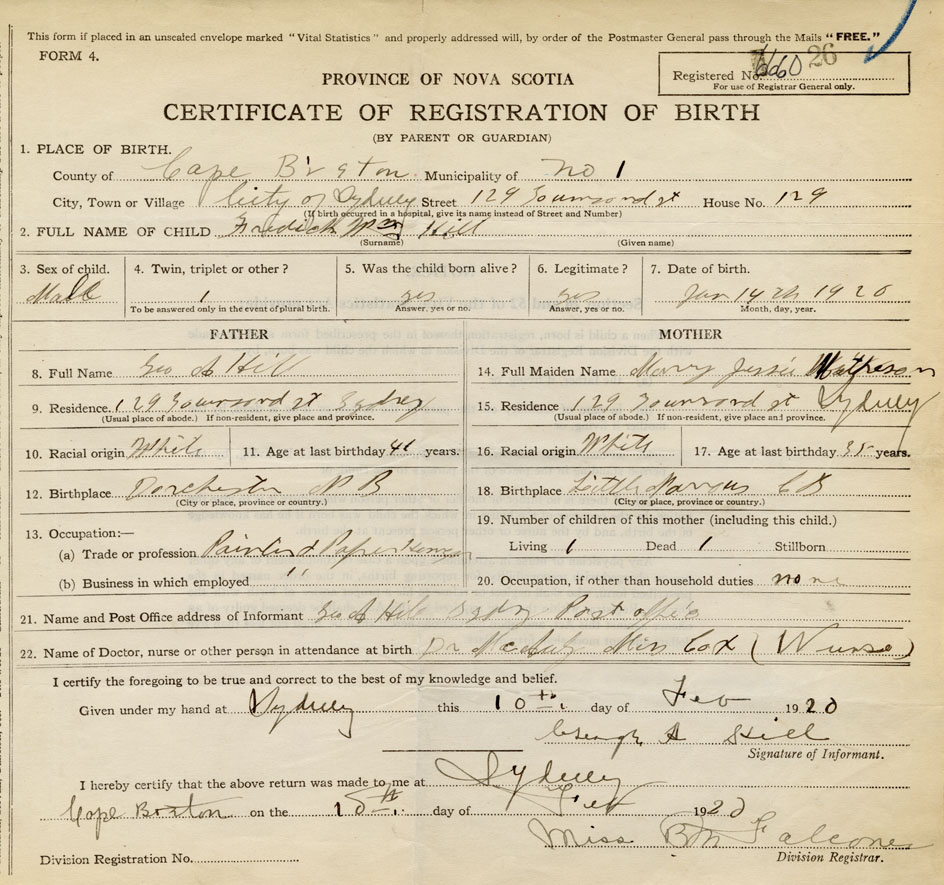 This form if placed in an unsealed envelope marked "Vital Statistics" and properly addressed will, by order of the Postmaster General pass through the Mails "FREE."
FORM 4.
Registered No. 660 26
For use of Registrar General only.
PROVINCE OF NOVA SCOTIA
CERTIFICATE OF REGISTRATION OF BIRTH
(BY PARENT OR GUARDIAN)
1. PLACE OF BIRTH.
County of Cape Breton Municipality of No 1
City, Town or Village City of Sydney Street 129 Townsend st House No. 129
(If birth occurred in a hospital, give its name instead of Street and Number)
2. FULL NAME OF CHILD Fredick Wm Hill
(Surname) (Given name)
3. Sex of child. 4. Twin, triplet or other? 5. Was the child born alive? 6. Legitimate? 7. Date of birth.
Male 1 yes yes Jan 14th 1920
To be answered only in the event of plural birth. Answer, yes or no. Answer, yes or no. Month, day, year.
FATHER MOTHER
8. Full Name Geo A Hill 14. Full Maiden Name Mary Jessie Matheson
9. Residence. 129 Townsend st Sydney 15. Residence 129 Townsend st Sydney
(Usual place of abode.) If non-resident, give place and province. (Usual place of abode.) If non-resident, give place and province.
10. Racial origin White 11. Age at last birthday 41 years. 16. Racial origin White 17. Age at last birthday 35 years.
12. Birthplace Dorchester N B 18. Birthplace Little Narrows C B
(City or place, province or country.) (City or place, province or country.)
13. Occupation:— 19. Number of children of this mother (including this child.)
(a) Trade or profession Painter & Paper Hanger Living 1 Dead 1 Stillborn
(b) Business in which employed " 20. Occupation, if other than household duties none
21. Name and Post Office address of Informant Geo A Hill Sydney Post office
22. Name of Doctor, nurse or other person in attendance at birth Dr Miss Cox (Nurse)
I certify the foregoing to be true and correct to the best of my knowledge and belief.
Given under my hand at Sydney this 10th day of Feb 1920
George A Hill
Signature of Informant.
I hereby certify that the above return was made to me at Sydney
Cape Breton on the 10th day of Feb 1920
Miss B M Falconer
Division Registration No. Division Registrar.